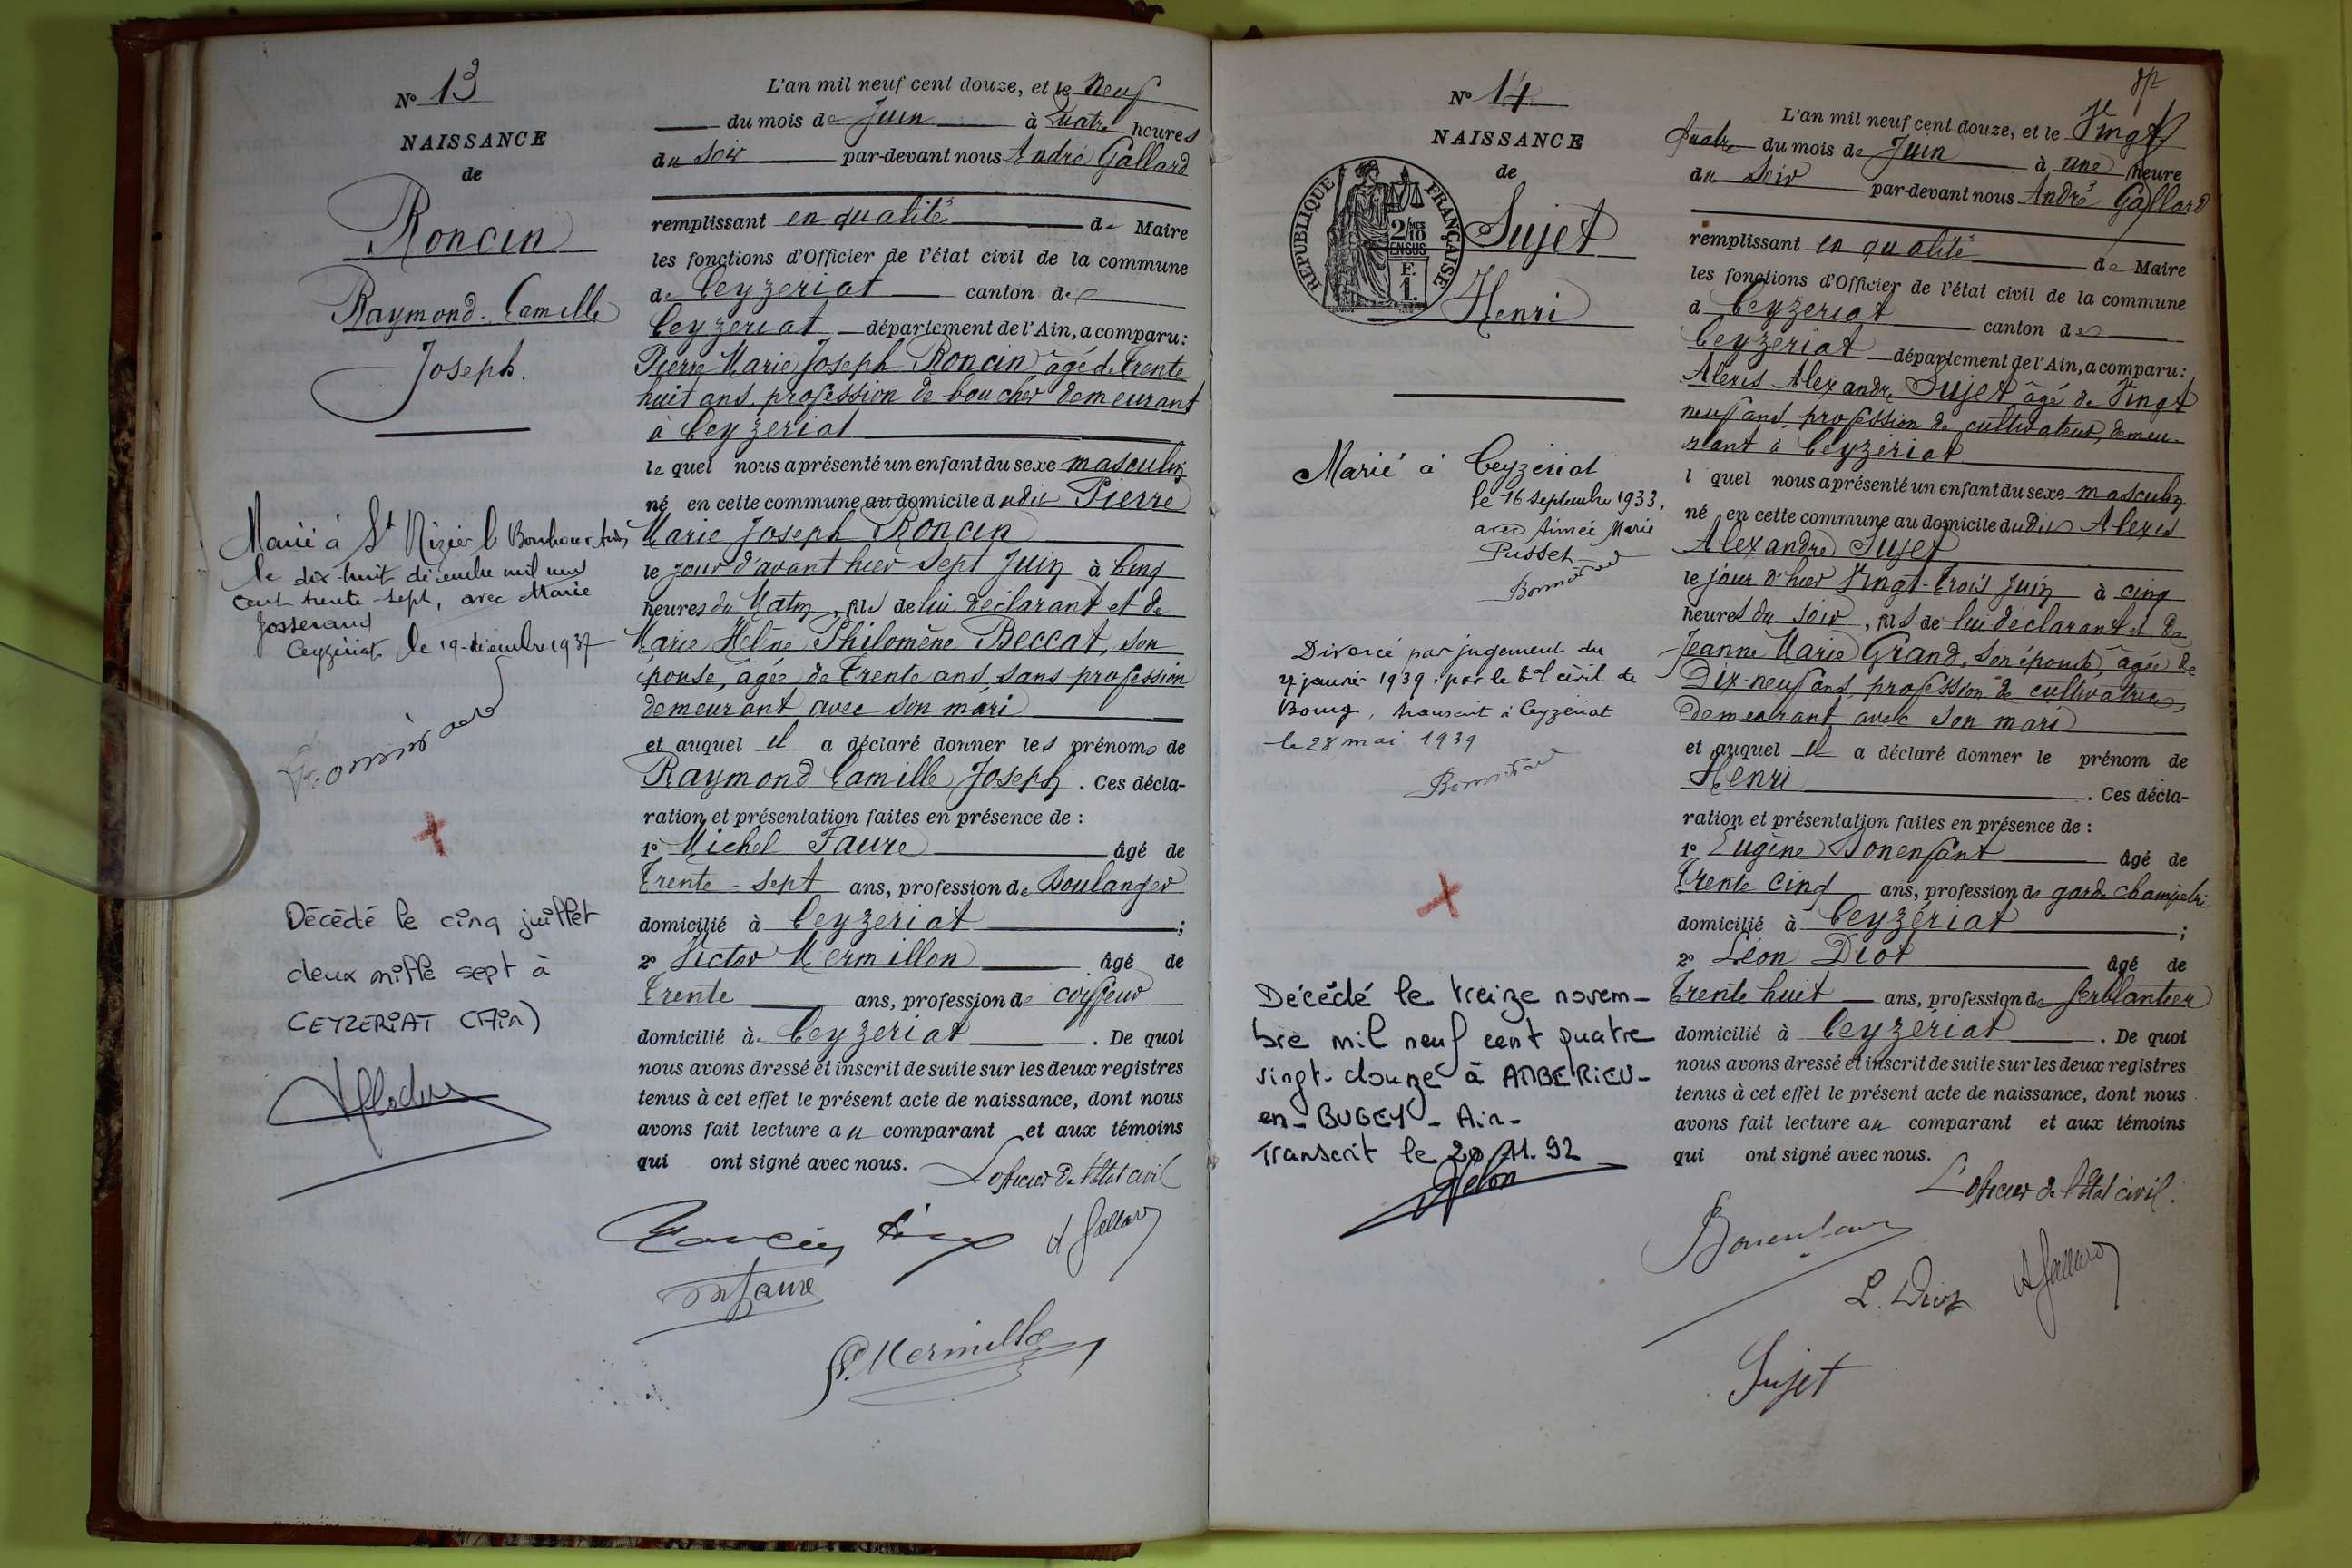 N° 13
NAISSANCE
de
Roncin
Raymond-Camille
Joseph.
Marié à St Nizier le Bouchoux (Ain)
le dix-huit décembre mil neuf
cent trente-sept, avec Marie
Josserand
Ceyzériat le 19 décembre 1937
Décédé le cinq juillet
deux mille sept à
CEYZERIAT (Ain)
L'an mil neuf cent douze, et le Neuf
du mois de Juin à Quatre heures
du soir par-devant nous André Gallard
remplissant en qualité de Maire
les fonctions d'Officier de l'état civil de la commune
de Ceyzeriat canton de
Ceyzeriat département de l'Ain, a comparu:
Pierre Marie Joseph Roncin âgé de trente
huit ans, profession de boucher demeurant
à Ceyzeriat
lequel nous a présenté un enfant du sexe masculin
né en cette commune au domicile dudit Pierre
Marie Joseph Roncin
le jour d'avant hier sept Juin à Cinq
heures du Matin, fils de lui déclarant et de
Marie Helène Philomène Beccat, son
épouse, âgée de trente ans, sans profession
demeurant avec son mari
et auquel il a déclaré donner les prénoms de
Raymond Camille Joseph. Ces décla-
ration et présentation faites en présence de :
1° Michel Faure âgé de
Trente-sept ans, profession de Boulanger
domicilié à Ceyzeriat ;
2° Victor Mermillon âgé de
Trente ans, profession de coiffeur
domicilié à Ceyzeriat. De quoi
nous avons dressé et inscrit de suite sur les deux registres
tenus à cet effet le présent acte de naissance, dont nous
avons fait lecture au comparant et aux témoins
qui ont signé avec nous. L'officier de l'état civil
Roncin A Gallard
M Faure
V. Mermillon
N° 14
NAISSANCE
de
RÉPUBLIQUE FRANÇAISE
2/10 MES
EN SUS
F.
1.
Sujet
Henri
Marié à Ceyzériat
le 16 septembre 1933,
avec Aimée Marie
Pusset
Divorcé par jugement du
janvier 1939 par le tal civil de
Bourg, transcrit à Ceyzériat
le 28 mai 1939
Décédé le treize novem-
bre mil neuf cent quatre
vingt-douze à AMBERIEU-
en-BUGEY - Ain-
Transcrit le 20.11.92
L'an mil neuf cent douze, et le Vingt
quatre du mois de Juin à une heure
du soir par-devant nous André Gallard
remplissant en qualité de Maire
les fonctions d'Officier de l'état civil de la commune
d Ceyzeriat canton de
Ceyzeriat département de l'Ain, a comparu:
Alexis Alexandre Sujet âgé de Vingt
neuf ans, profession de cultivateur, demeu-
rant à Ceyzériat
l quel nous a présenté un enfant du sexe masculin
né en cette commune au domicile dudit Alexis
Alexandre Sujet
le jour d'hier Vingt-trois Juin à cinq
heures du soir, fils de lui déclarant et de
Jeanne Marie Grand, son épouse, âgée de
Dix-neuf ans, profession de cultivatrice,
demeurant avec son mari
et auquel il a déclaré donner le prénom de
Henri. Ces décla-
ration et présentation faites en présence de :
1° Eugène Bonenfant âgé de
Trente cinq ans, profession de garde champêtre
domicilié à Ceyzériat ;
2° Léon Diot âgé de
Trente huit ans, profession de ferblantier
domicilié à Ceyzériat. De quoi
nous avons dressé et inscrit de suite sur les deux registres
tenus à cet effet le présent acte de naissance, dont nous
avons fait lecture au comparant et aux témoins
qui ont signé avec nous.
L'officier de l'état civil.
Bonenfant
L. Diot A Gallard
Sujet